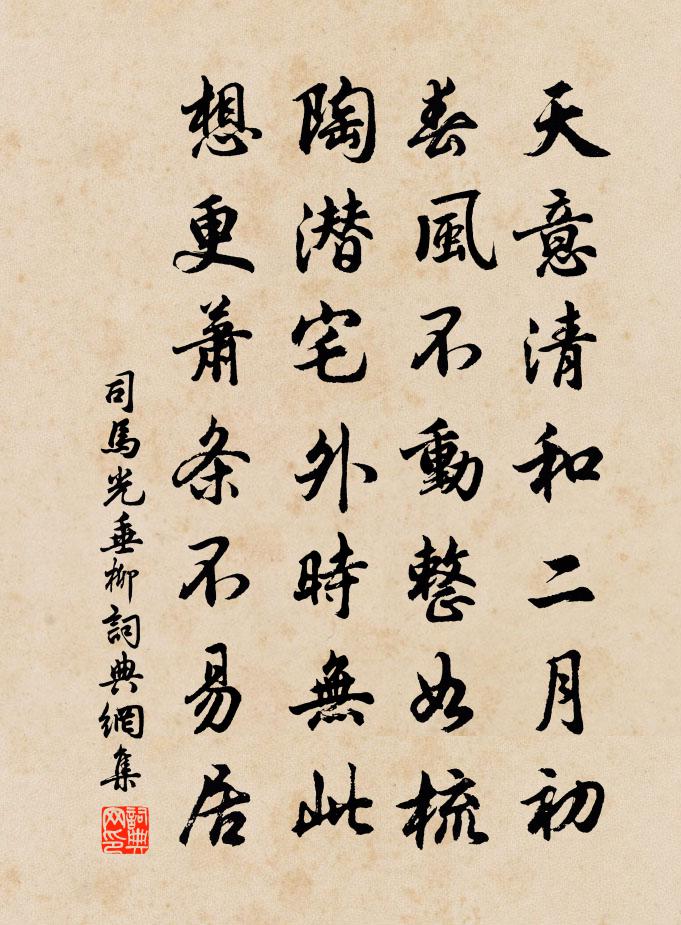 天意清和二月初
春風不動整如梳
陶潜宅外時無此
想更蕭条不易居
司馬光垂柳詞典網集
詞典
网印